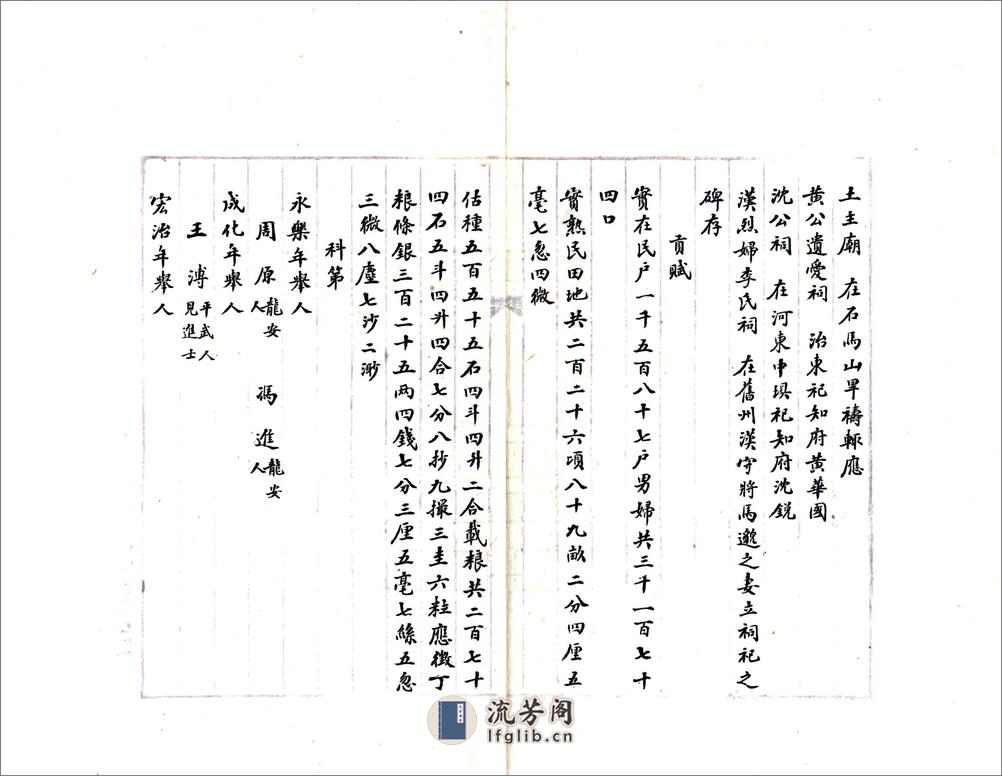 土主廟　在石馬山旱禱輒應
黃公遺愛祠　治東祀知府黃華國
沈公祠　在河東中埧祀知府沈銳
漢烈婦李氏祠　在舊州漢守將馬邈之妻立祠祀之
碑存
貢賦
實在民戶一千五百八十七戶男婦共三千一百七十
四口
實熟民田地共二百二十六頃八十九畝二分四厘五
毫七忽四微
估種五百五十五石四斗四升二合載粮共二百七十
四石五斗四升四合七分八抄九撮三圭六粒應徵丁
粮條銀三百二十五两四錢七分三厘五毫七絲五忽
三微八塵七沙二渺
科第
永樂年舉人
周原龍安人　馮進龍安人
成化年舉人
王溥平武人見進士
宏治年舉人
流芳阁
lfglib.cn